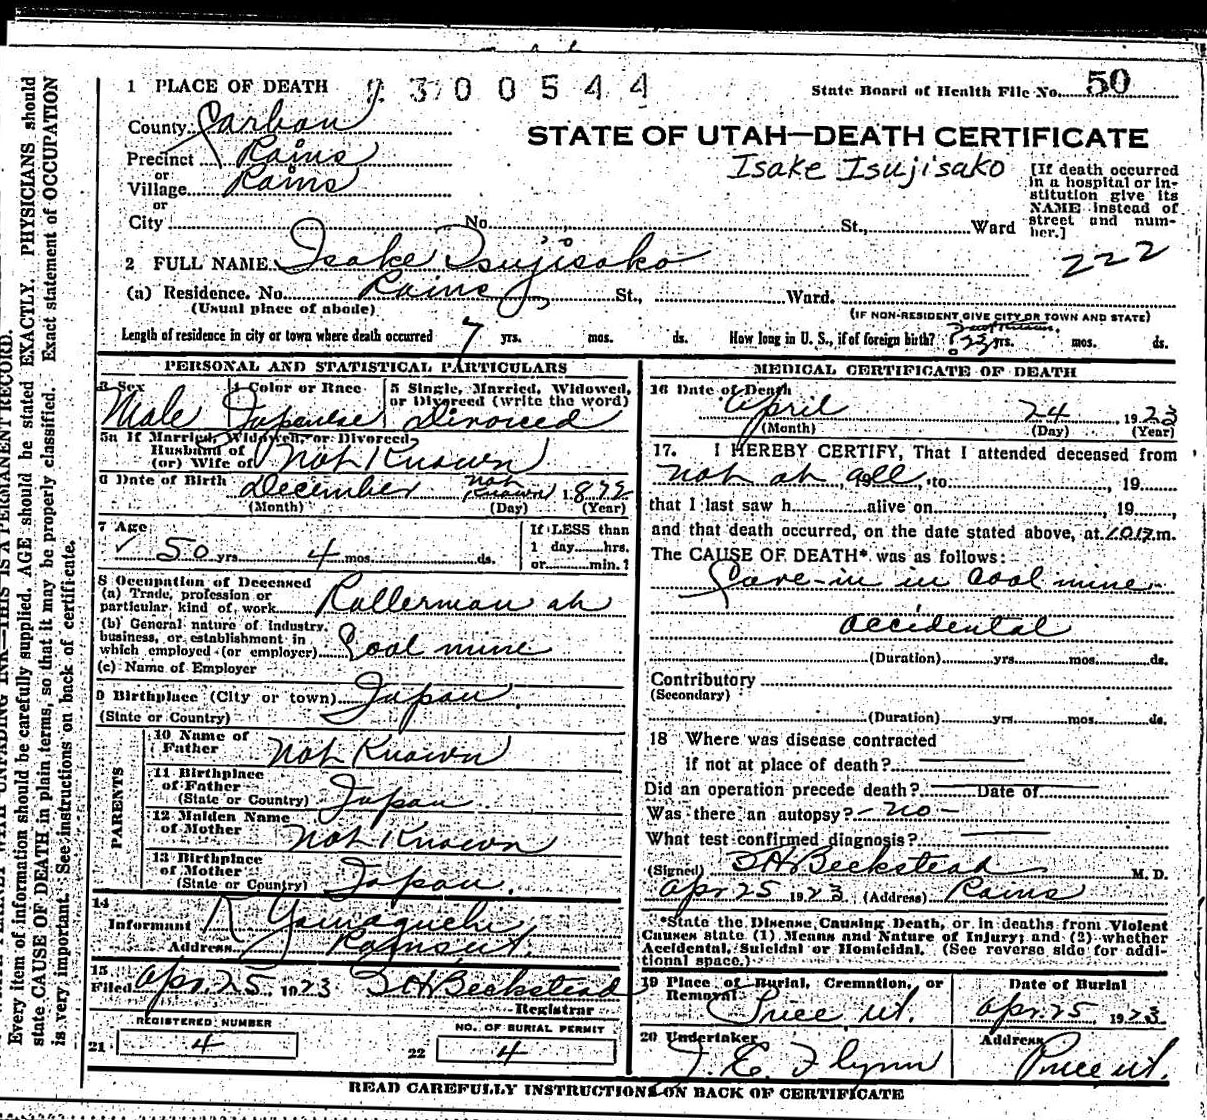 1 PLACE OF DEATH 2 3 0 0 5 4 4
State Board of Health File No. 50
County Carbon
STATE OF UTAH—DEATH CERTIFICATE
Precinct Rains
Isake Isujisako
or
Village Rains
or
City No. St., Ward
[If death occurred
in a hospital or in-
stitution give its
NAME instead of
street and num-
ber.]
2 FULL NAME Isake Tsujisako
222
(a) Residence. No. Rains St., Ward.
(Usual place of abode) (IF NON-RESIDENT GIVE CITY OR TOWN AND STATE)
Length of residence in city or town where death occurred 7 yrs. mos. ds. How long in U. S., if of foreign birth? 23 yrs. mos. ds.
PERSONAL AND STATISTICAL PARTICULARS
3 Sex
Male
4 Color or Race
Japanese
5 Single, Married, Widowed,
or Divorced (write the word)
Divorced
5a If Married, Widowed, or Divorced
Husband of
(or) Wife of Not Known
6 Date of Birth December Not Known 1872
(Month) (Day) (Year)
7 Age
✓ 50 yrs. 4 mos. ds.
If LESS than
1 day hrs.
or min.?
8 Occupation of Deceased
(a) Trade, profession or
particular, kind of work Rollerman at
(b) General nature of industry,
business, or establishment in
which employed (or employer) Coal mine
(c) Name of Employer
9 Birthplace (City or town) Japan
(State or Country)
PARENTS
10 Name of
Father Not Known
11 Birthplace
of Father
(State or Country) Japan
12 Maiden Name
of Mother Not Known
13 Birthplace
of Mother
(State or Country) Japan.
14
Informant K Yamaguchi
Address Rains ut.
15
Filed Apr. 25, 1923 B H Beckstead
Registrar
REGISTERED NUMBER
21 4
NO. OF BURIAL PERMIT
22 4
MEDICAL CERTIFICATE OF DEATH
16 Date of Death
April 24, 1923
(Month) (Day) (Year)
17. I HEREBY CERTIFY, That I attended deceased from
not at all, 19 , to , 19 ,
that I last saw h alive on , 19 ,
and that death occurred, on the date stated above, at m.
The CAUSE OF DEATH* was as follows:
Cave-in in Coal mine
accidental
(Duration) yrs. mos. ds.
Contributory
(Secondary)
(Duration) yrs. mos. ds.
18 Where was disease contracted
if not at place of death?
Did an operation precede death? Date of
Was there an autopsy? - no -
What test confirmed diagnosis?
(Signed) B H Beckstead M. D.
Apr 25 1923 (Address) Rains
*State the Disease Causing Death, or in deaths from Violent
Causes state (1) Means and Nature of Injury; and (2) whether
Accidental, Suicidal or Homicidal. (See reverse side for addi-
tional space.)
19 Place of Burial, Cremation, or
Removal
Price ut.
Date of Burial
Apr. 25, 1923
20 Undertaker
J. E. Flynn
Address
Price ut.
READ CAREFULLY INSTRUCTIONS ON BACK OF CERTIFICATE
THIS IS A PERMANENT RECORD.
Every item of information should be carefully supplied. AGE should be stated EXACTLY. PHYSICIANS should
state CAUSE OF DEATH in plain terms, so that it may be properly classified. Exact statement of OCCUPATION
is very important. See instructions on back of certificate.